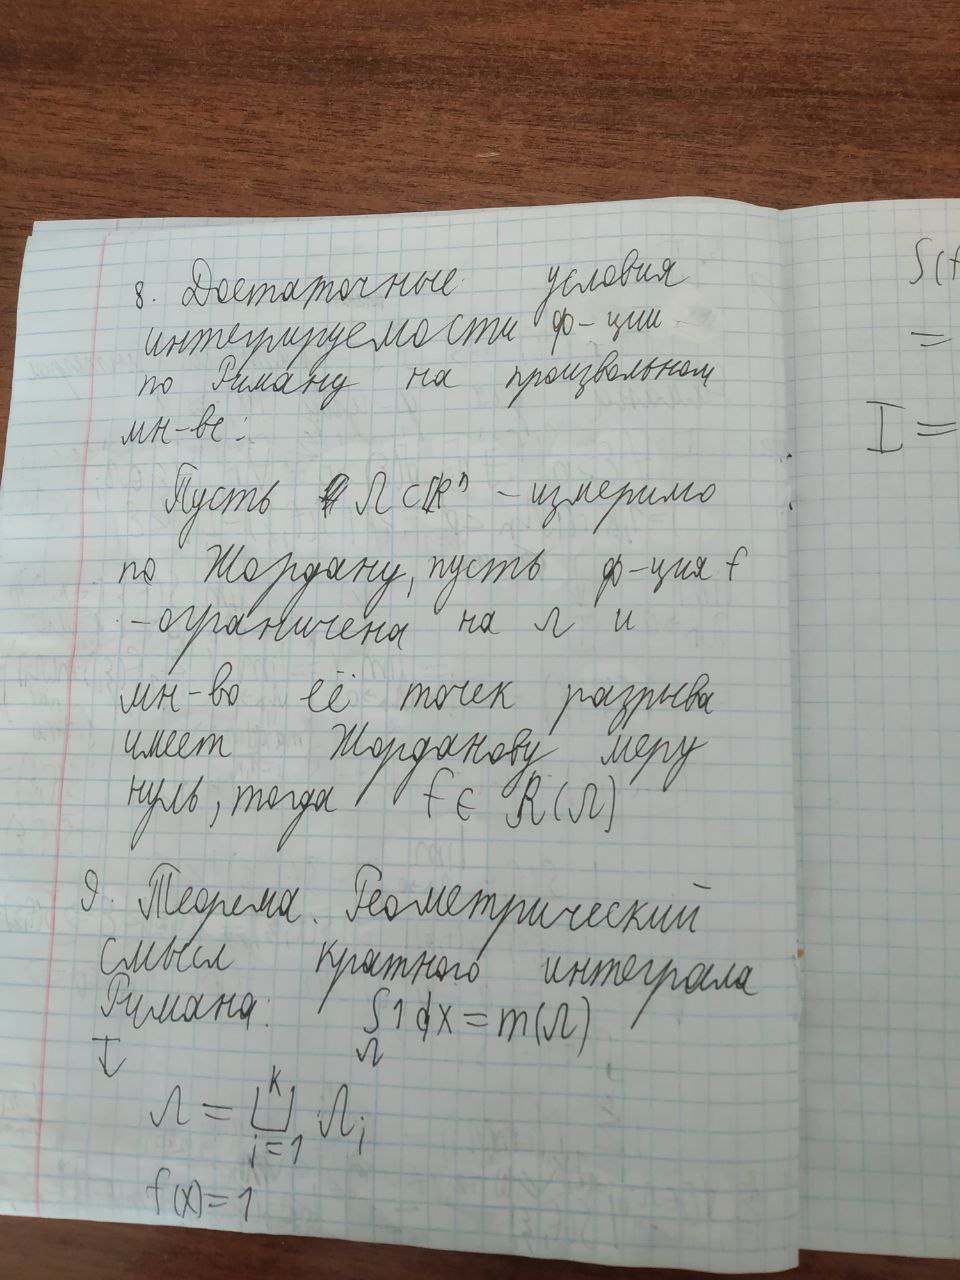 8. Достаточные условия
интегрируемости ф-ции
по Риману на произвольном
мн-ве:
Пусть Ω ⊂ ℝⁿ - измеримо
по Жордану, пусть ф-ция f
- ограничена на Ω и
мн-во её точек разрыва
имеет Жорданову меру
нуль, тогда f ∈ R(Ω)
9. Теорема. Геометрический
смысл кратного интеграла
Римана: ∫_Ω 1 dx = m(Ω)
Ω = ⊔_{i=1}^{k} Ω_i
f(x) = 1
S(f
=
I =